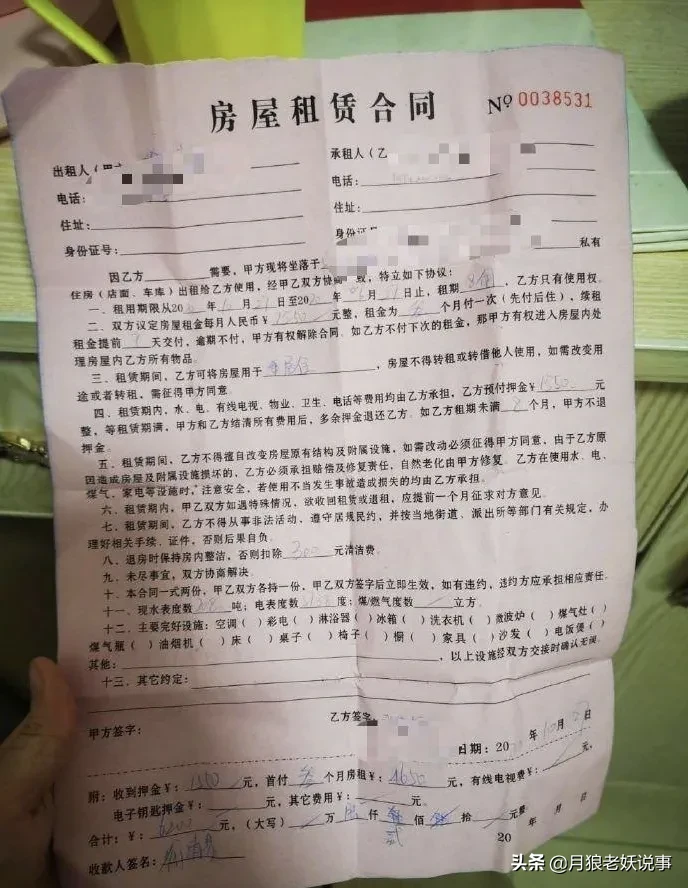 房屋租赁合同
№ 0038531
出租人（甲
承租人（乙
电话：
电话：
住址：
住址：
身份证号：
身
因乙方 需要，甲方现将坐落于 私有
住房（店面、车库）出租给乙方使用，经甲乙双方协商 致，特立如下协议：
一、租用期限从20 年 月 日至20 年 月 日止，租期 8个 ，乙方只有使用权。
二、双方议定房屋租金每月人民币￥1550元整，租金为 个月付一次（先付后住），续租
租金提前 天交付，逾期不付，甲方有权解除合同。如乙方不付下次的租金，那甲方有权进入房屋内处
理房屋内乙方所有物品。
三、租赁期间，乙方可将房屋用于 居住 ，房屋不得转租或转借他人使用，如需改变用
途或者转租，需征得甲方同意。
四、租赁期内，水、电、有线电视、物业、卫生、电话等费用均由乙方承担，乙方预付押金￥1550 元
整，等租赁期满，甲方和乙方结清所有费用后，多余押金退还乙方。如乙方租期未满 8 个月，甲方不退
押金。
五、租赁期间，乙方不得擅自改变房屋原有结构及附属设施，如需改动必须征得甲方同意，由于乙方原
因造成房屋及附属设施损坏的，乙方必须承担赔偿及修复责任，自然老化由甲方修复。乙方在使用水、电、
煤气、家电等设施时，注意安全，若使用不当发生事故造成损失的均由乙方承担。
六、租赁期内，甲乙双方如遇特殊情况，欲收回租赁或退租，应提前一个月征求对方意见。
七、租赁期间，乙方不得从事非法活动，遵守居规民约，并按当地街道、派出所等部门有关规定，办
理好相关手续、证件，否则后果自负。
八、退房时保持房内整洁，否则扣除 300 元清洁费。
九、未尽事宜，双方协商解决。
十、本合同一式两份，甲乙双方各持一份，甲乙双方签字后立即生效，如有违约，违约方应承担相应责任。
十一、现水表度数 吨；电表度数 度；煤/燃气度数 立方。
十二、主要完好设施：空调（ ）彩电（ ）淋浴器（ ）冰箱（ ）洗衣机（ ）微波炉（ ）煤气灶（ ）
煤气瓶（ ）油烟机（ ）床（ ）桌子（ ）椅子（ ）橱（ ）家具（ ）沙发（ ）电饭煲（ ）
其他： ，以上设施经双方交接时确认无误。
十三、其它约定：
甲方签字：
乙方签字
日期：20 年10月 日
附：收到押金￥：1550 元，首付 叁 个月房租￥：4650 元，有线电视费￥： 元，
电子钥匙押金￥： 元，其它费用￥： 元。
合计：￥：6200 元，（大写） 万 陆 仟 佰 拾 元整
贰
收款人签名：
20 年 月 日
头条 @月狼老妖说事